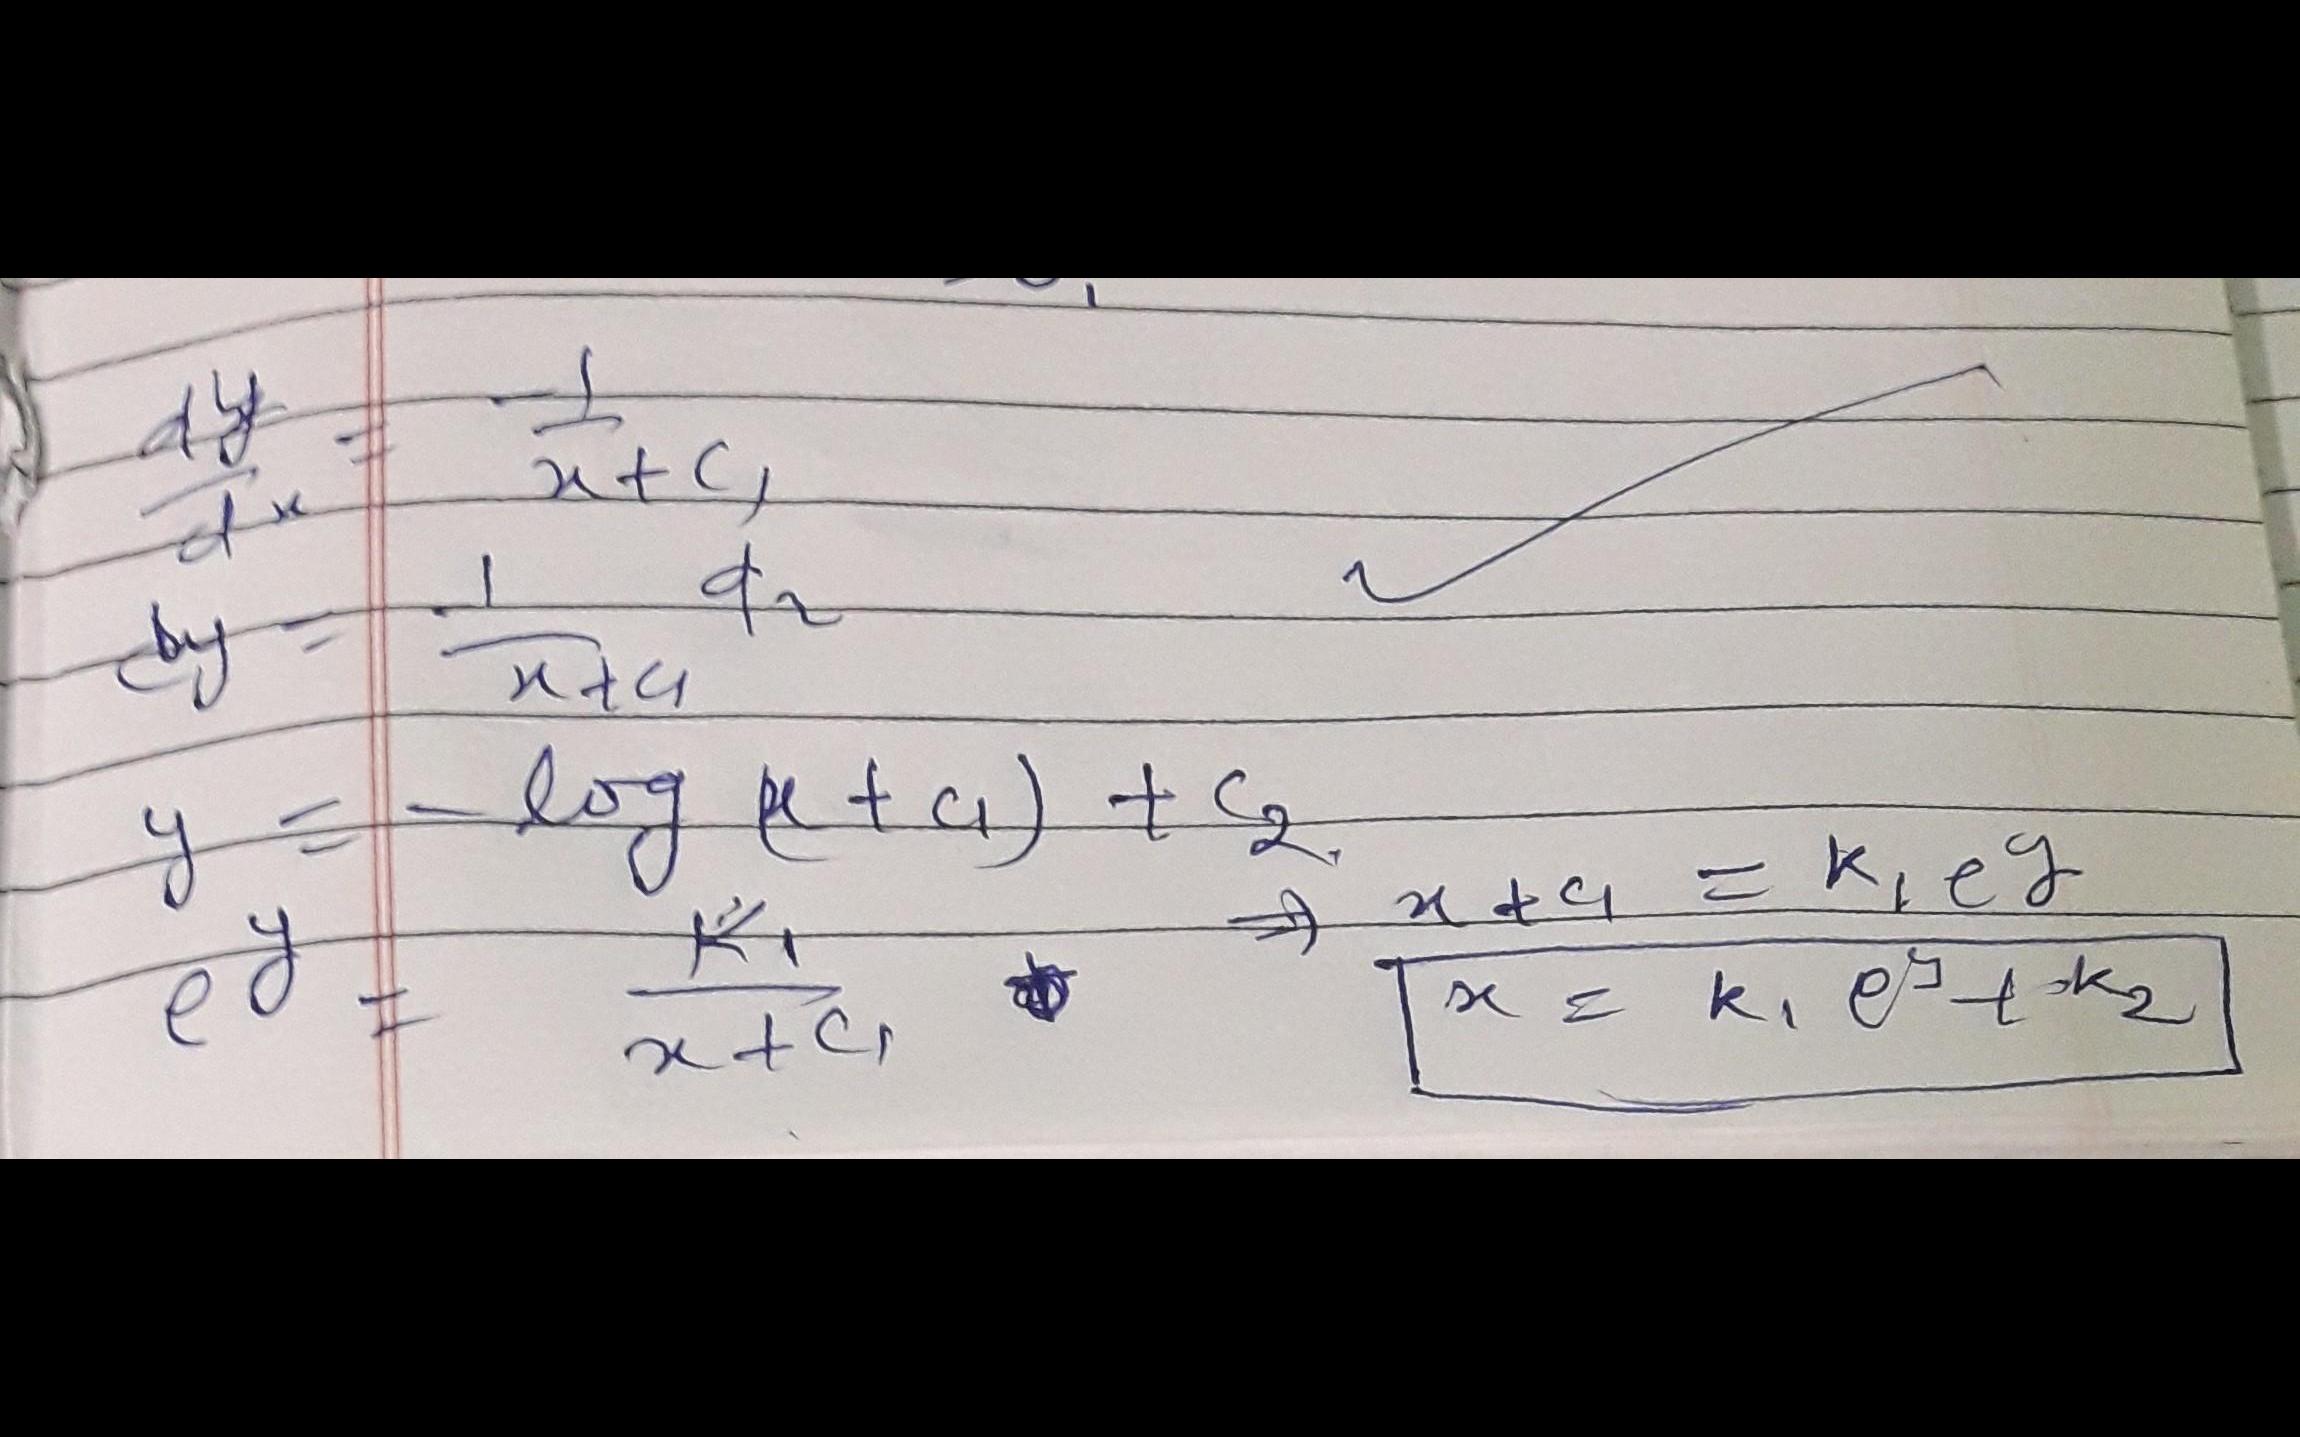 dy/dx = -1/(x+c₁)
dy = -1/(x+c₁) dx
y = -log (x+c₁) + c₂.
e^y = K₁/(x+c₁) ⇒ x+c₁ = k₁e^y
x = k₁ e^y + k₂